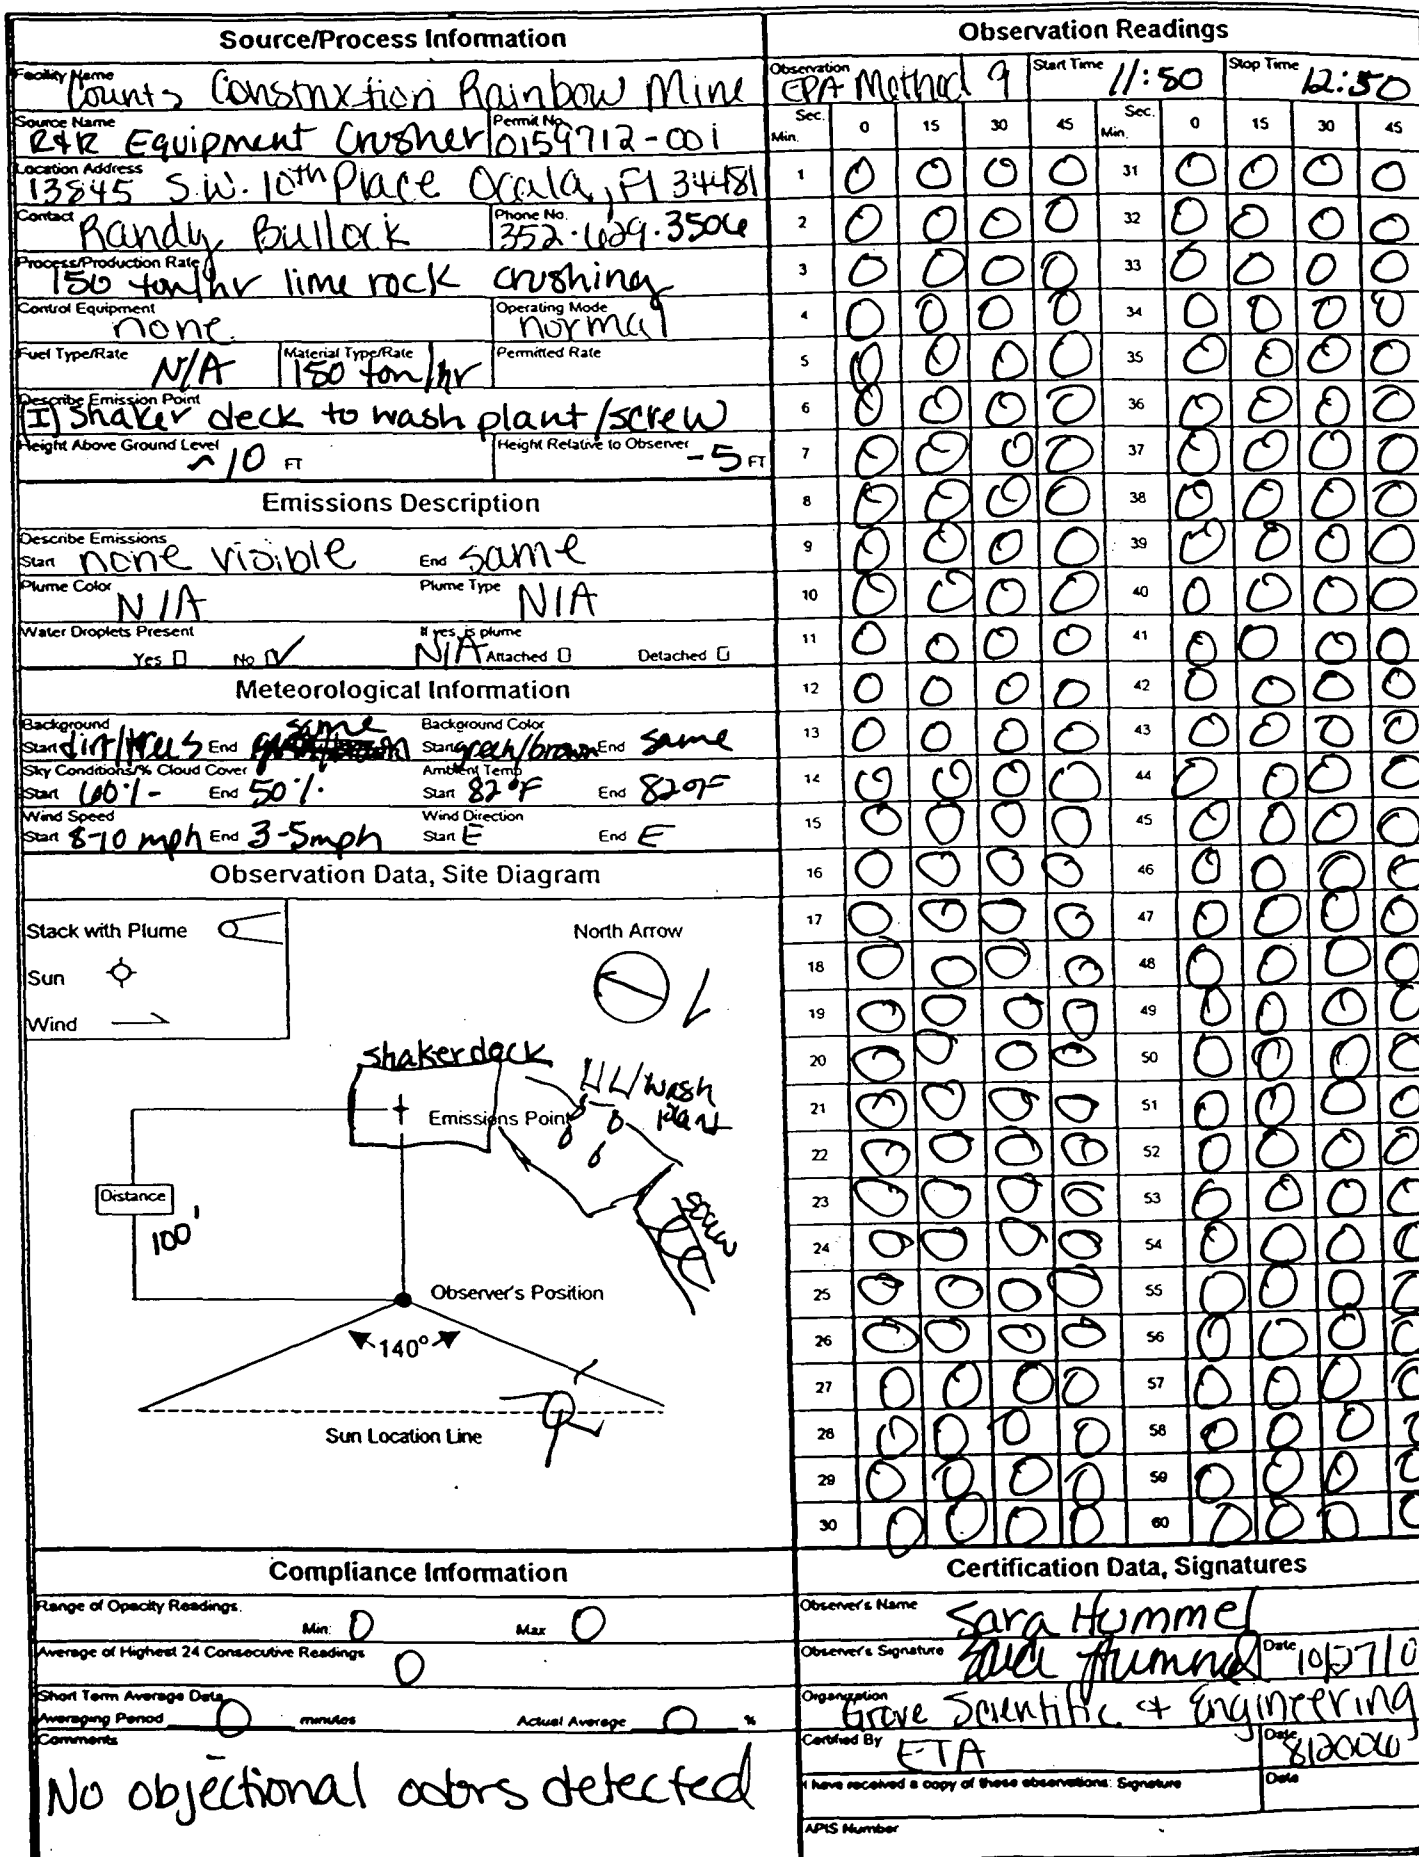 Source/Process Information
Facility Name
Counts Construxtion Rainbow Mine
Source Name
R&R Equipment Crusher
Permit No.
0159712-001
Location Address
13845 S.W. 10th Place Ocala, Fl 34481
Contact
Randy Bullock
Phone No.
352.629.3506
Process/Production Rate
150 ton/hr lime rock crushing
Control Equipment
none
Operating Mode
normal
Fuel Type/Rate
N/A
Material Type/Rate
150 ton/hr
Permitted Rate
Describe Emission Point
(I) Shaker deck to wash plant/screw
Height Above Ground Level
~10 FT
Height Relative to Observer
-5 FT
Emissions Description
Describe Emissions
Start none visible End same
Plume Color
N/A
Plume Type
N/A
Water Droplets Present
Yes No ✓
If yes, is plume
N/A Attached Detached
Meteorological Information
Background
Start dirt/trees End same
Background Color
Start green/brown End same
Sky Conditions/% Cloud Cover
Start 60% End 50%
Ambient Temp
Start 82°F End 82°F
Wind Speed
Start 8-10 mph End 3-5mph
Wind Direction
Start E End E
Observation Data, Site Diagram
Stack with Plume
Sun
Wind
North Arrow
shaker deck
wash
plant
Emissions Point
screw
Distance
100'
Observer's Position
140°
Sun Location Line
Compliance Information
Range of Opacity Readings
Min: 0 Max 0
Average of Highest 24 Consecutive Readings
0
Short Term Average Data
Averaging Period 0 minutes Actual Average 0 %
Comments
No objectional odors detected
Observation Readings
Observation
EPA Method 9
Start Time
11:50
Stop Time
12:50
Sec. 0 15 30 45 Sec. 0 15 30 45
Min. Min.
1 0 0 0 0 31 0 0 0 0
2 0 0 0 0 32 0 0 0 0
3 0 0 0 0 33 0 0 0 0
4 0 0 0 0 34 0 0 0 0
5 0 0 0 0 35 0 0 0 0
6 0 0 0 0 36 0 0 0 0
7 0 0 0 0 37 0 0 0 0
8 0 0 0 0 38 0 0 0 0
9 0 0 0 0 39 0 0 0 0
10 0 0 0 0 40 0 0 0 0
11 0 0 0 0 41 0 0 0 0
12 0 0 0 0 42 0 0 0 0
13 0 0 0 0 43 0 0 0 0
14 0 0 0 0 44 0 0 0 0
15 0 0 0 0 45 0 0 0 0
16 0 0 0 0 46 0 0 0 0
17 0 0 0 0 47 0 0 0 0
18 0 0 0 0 48 0 0 0 0
19 0 0 0 0 49 0 0 0 0
20 0 0 0 0 50 0 0 0 0
21 0 0 0 0 51 0 0 0 0
22 0 0 0 0 52 0 0 0 0
23 0 0 0 0 53 0 0 0 0
24 0 0 0 0 54 0 0 0 0
25 0 0 0 0 55 0 0 0 0
26 0 0 0 0 56 0 0 0 0
27 0 0 0 0 57 0 0 0 0
28 0 0 0 0 58 0 0 0 0
29 0 0 0 0 59 0 0 0 0
30 0 0 0 0 60 0 0 0 0
Certification Data, Signatures
Observer's Name
Sara Hummel
Observer's Signature
Sara Hummel
Date
10/27/0
Organization
Grove Scientific & Engineering
Certified By
ETA
Date
I have received a copy of these observations: Signature
Date
APIS Number